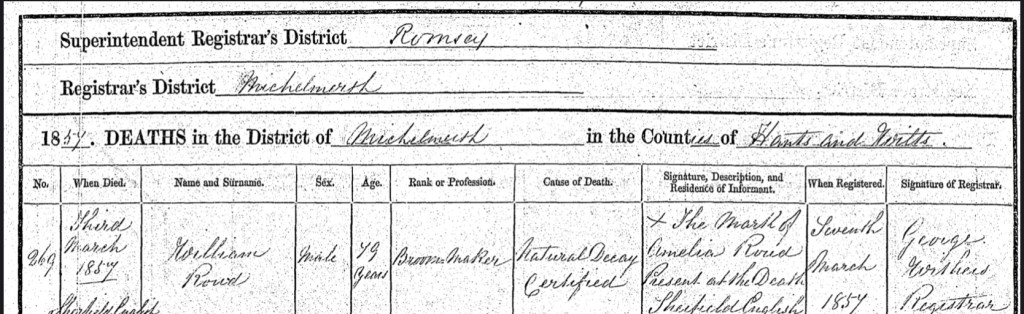 Superintendent Registrar's District Romsey
Registrar's District Michelmersh
1857. DEATHS in the District of Michelmersh in the Counties of Hants and Wilts.
No. When Died. Name and Surname. Sex. Age. Rank or Profession. Cause of Death. Signature, Description, and Residence of Informant. When Registered. Signature of Registrar.
269 Third March 1857 William Roud Male 79 Years Broom Maker Natural Decay Certified X The Mark of Amelia Roud Present at the Death Sherfield English Seventh March 1857 George Withers Registrar
Sherfield English